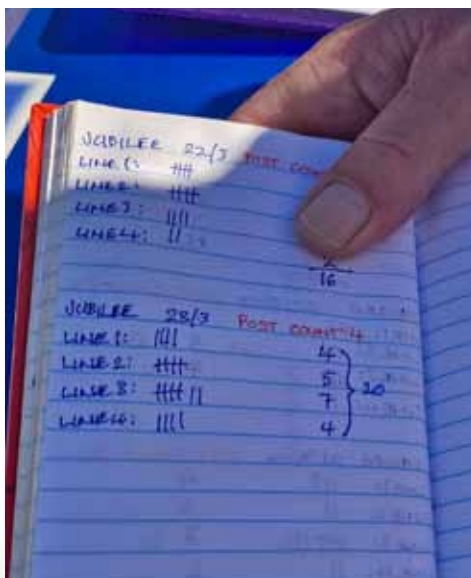 JUBILEE 22/3 POST COU
LINE 1: 卌
LINE 2: 卌
LINE 3: ||||
LINE 4: ||
2
16
JUBILEE 23/3 POST COUNT 4
LINE 1: |||| 4
LINE 2: 卌 5
LINE 3: 卌 || 7
LINE 4: |||| 4
20